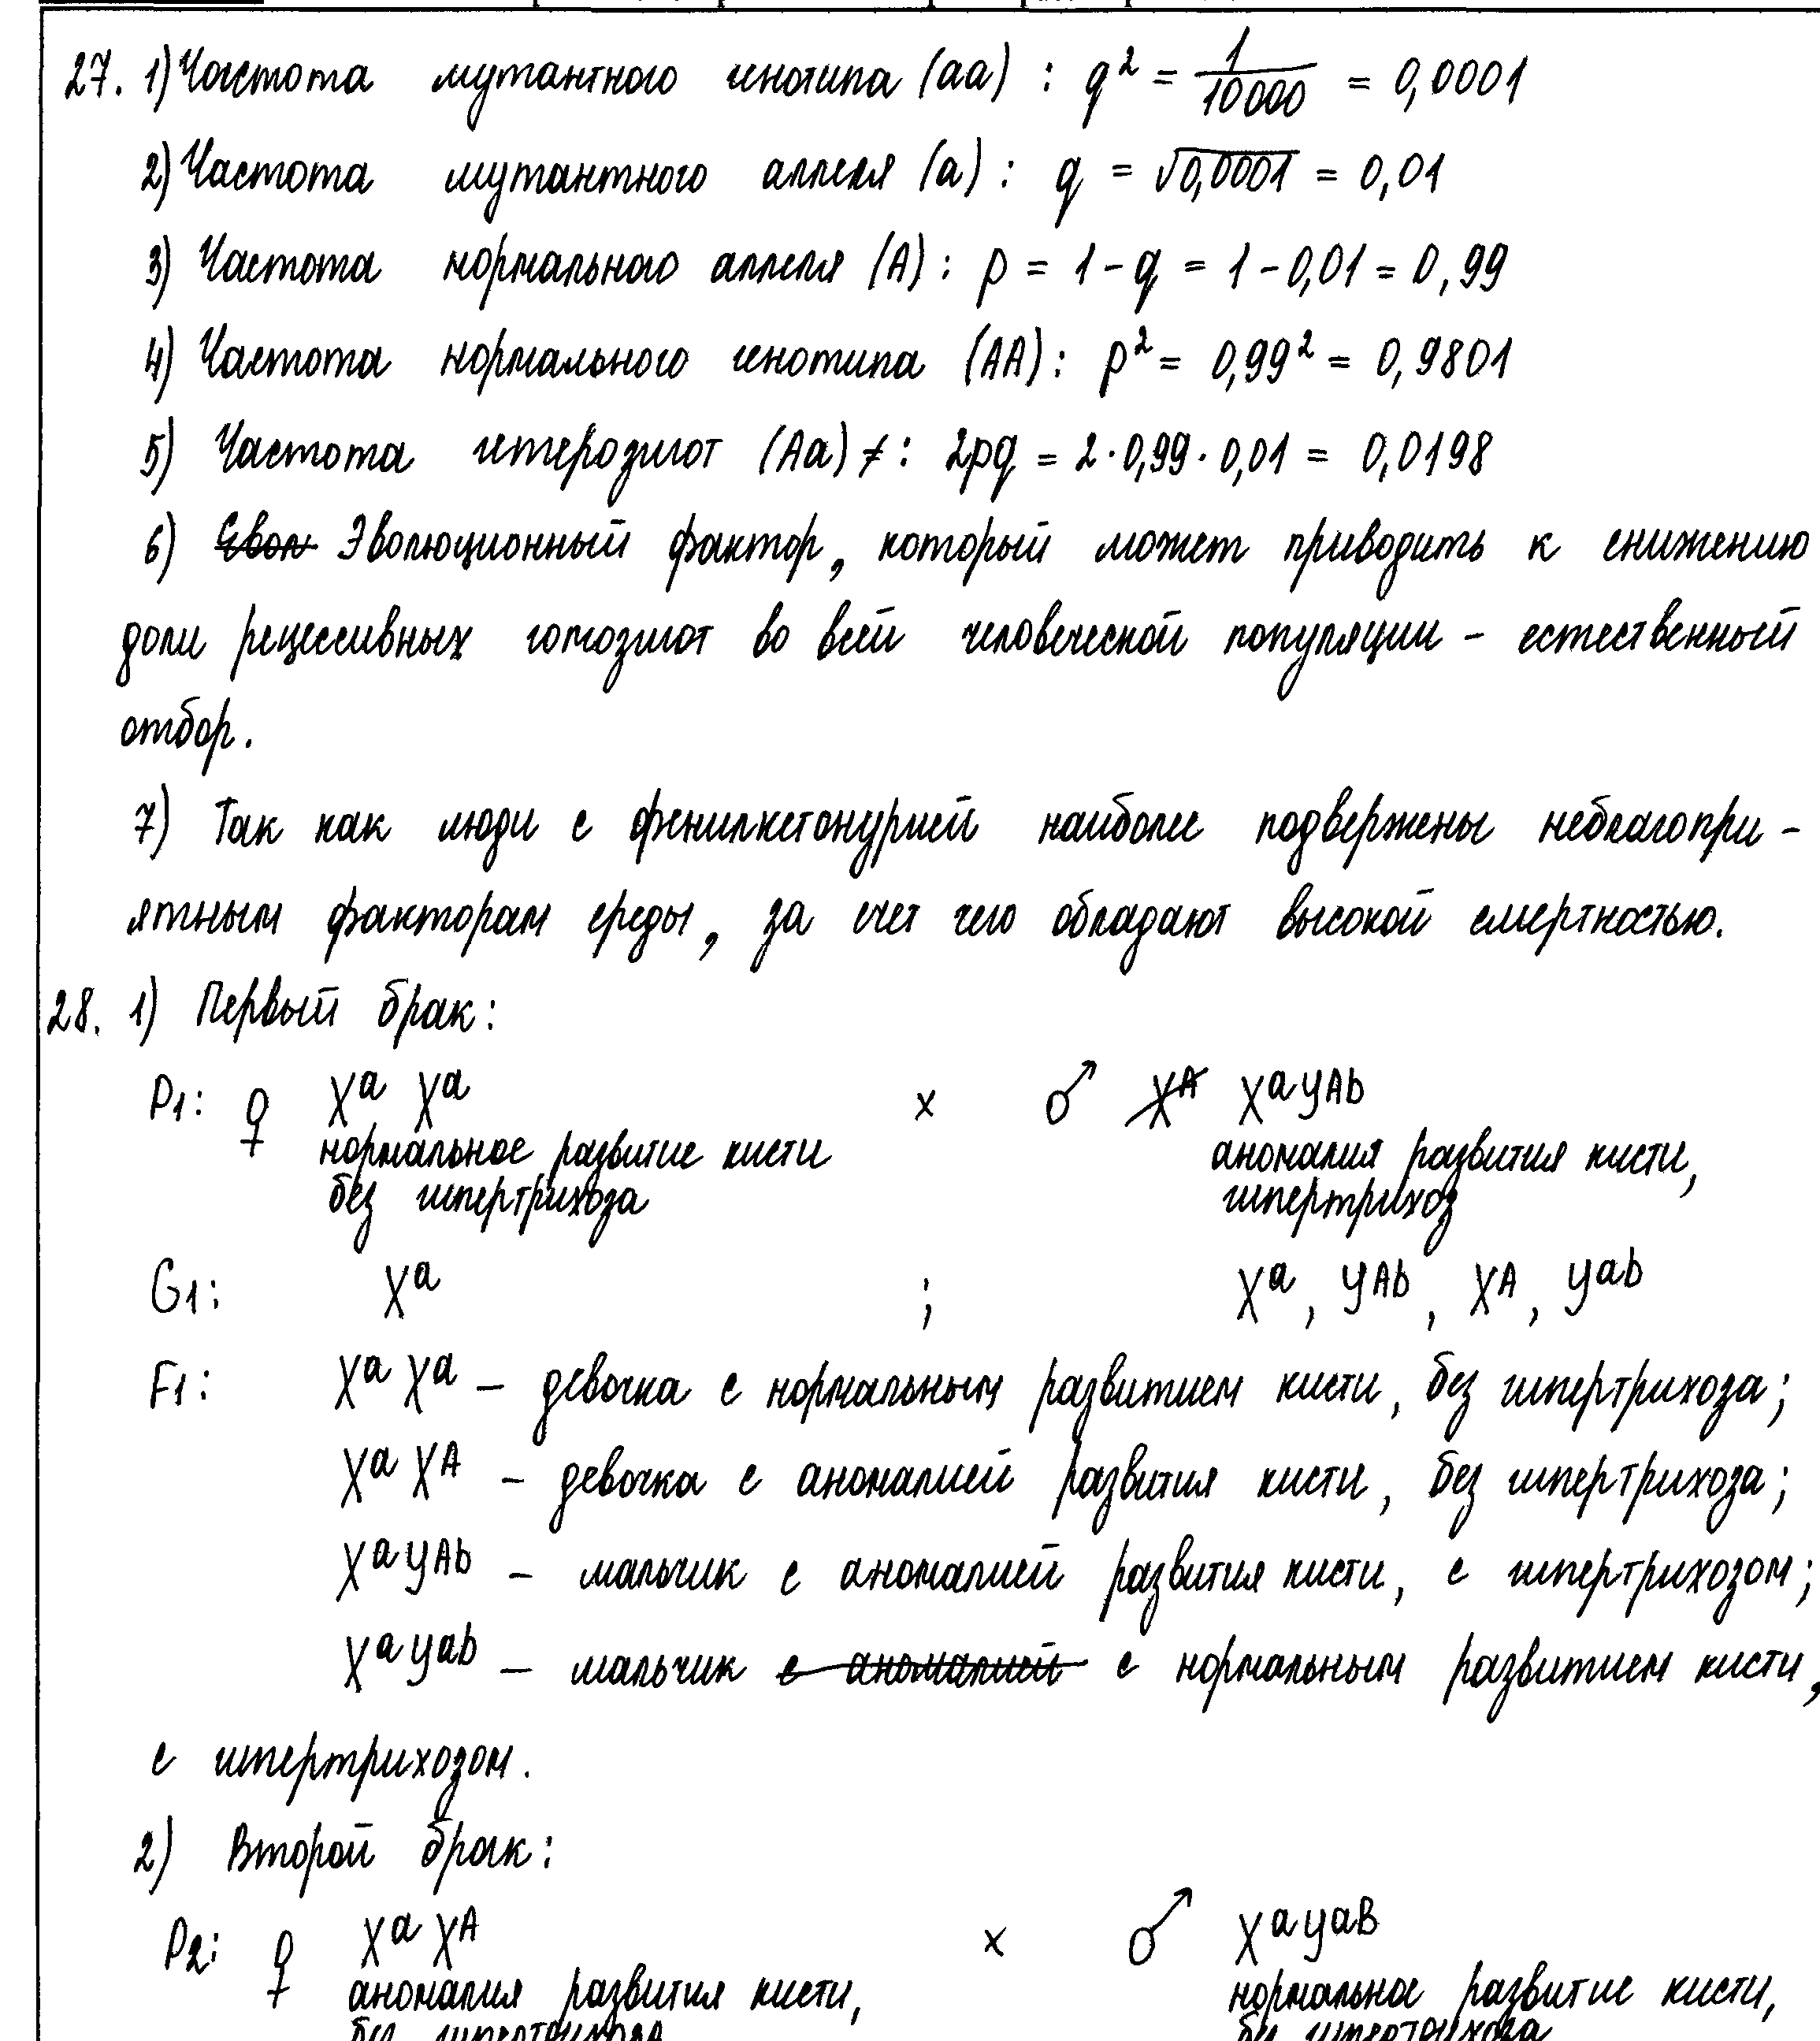 27. 1) Частота мутантного генотипа (aa) : q² = 1/10000 = 0,0001
2) Частота мутантного аллеля (a) : q = √0,0001 = 0,01
3) Частота нормального аллеля (A) : p = 1 - q = 1 - 0,01 = 0,99
4) Частота нормального генотипа (AA) : p² = 0,99² = 0,9801
5) Частота гетерозигот (Aa) : 2pq = 2 · 0,99 · 0,01 = 0,0198
6) Эволюционный фактор, который может приводить к снижению
доли рецессивных гомозигот во всей человеческой популяции - естественный
отбор.
7) Так как люди с фенилкетонурией наиболее подвержены неблагопри-
ятным факторам среды, за счет чего обладают высокой смертностью.
28. 1) Первый брак:
P1: ♀ Xᵃ Xᵃ x ♂ X^A Xᵃ Y^Ab
нормальное развитие кисти аномалия развития кисти,
без гипертрихоза гипертрихоз
G1: Xᵃ ; Xᵃ, Y^Ab, X^A, Y^ab
F1: Xᵃ Xᵃ - девочка с нормальным развитием кисти, без гипертрихоза;
Xᵃ X^A - девочка с аномалией развития кисти, без гипертрихоза;
Xᵃ Y^Ab - мальчик с аномалией развития кисти, с гипертрихозом;
Xᵃ Y^ab - мальчик с аномалией с нормальным развитием кисти,
с гипертрихозом.
2) Второй брак:
P2: ♀ Xᵃ X^A x ♂ Xᵃ Y^aB
аномалия развития кисти, нормальное развитие кисти,
без гипертрихоза без гипертрихоза